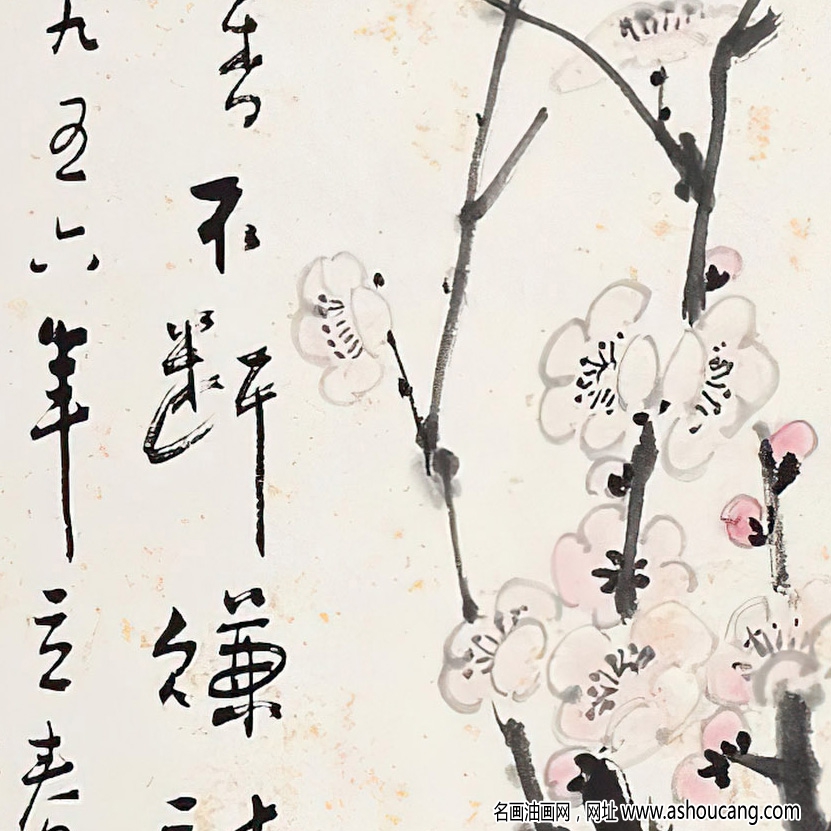 不斷嫌
九五六年立春
名画油画网，网址 www.ashoucang.com